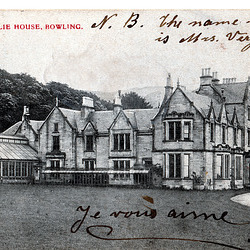 LIE HOUSE, BOWLING.
N. B. The name
is Mrs. Ver
Je vous aime